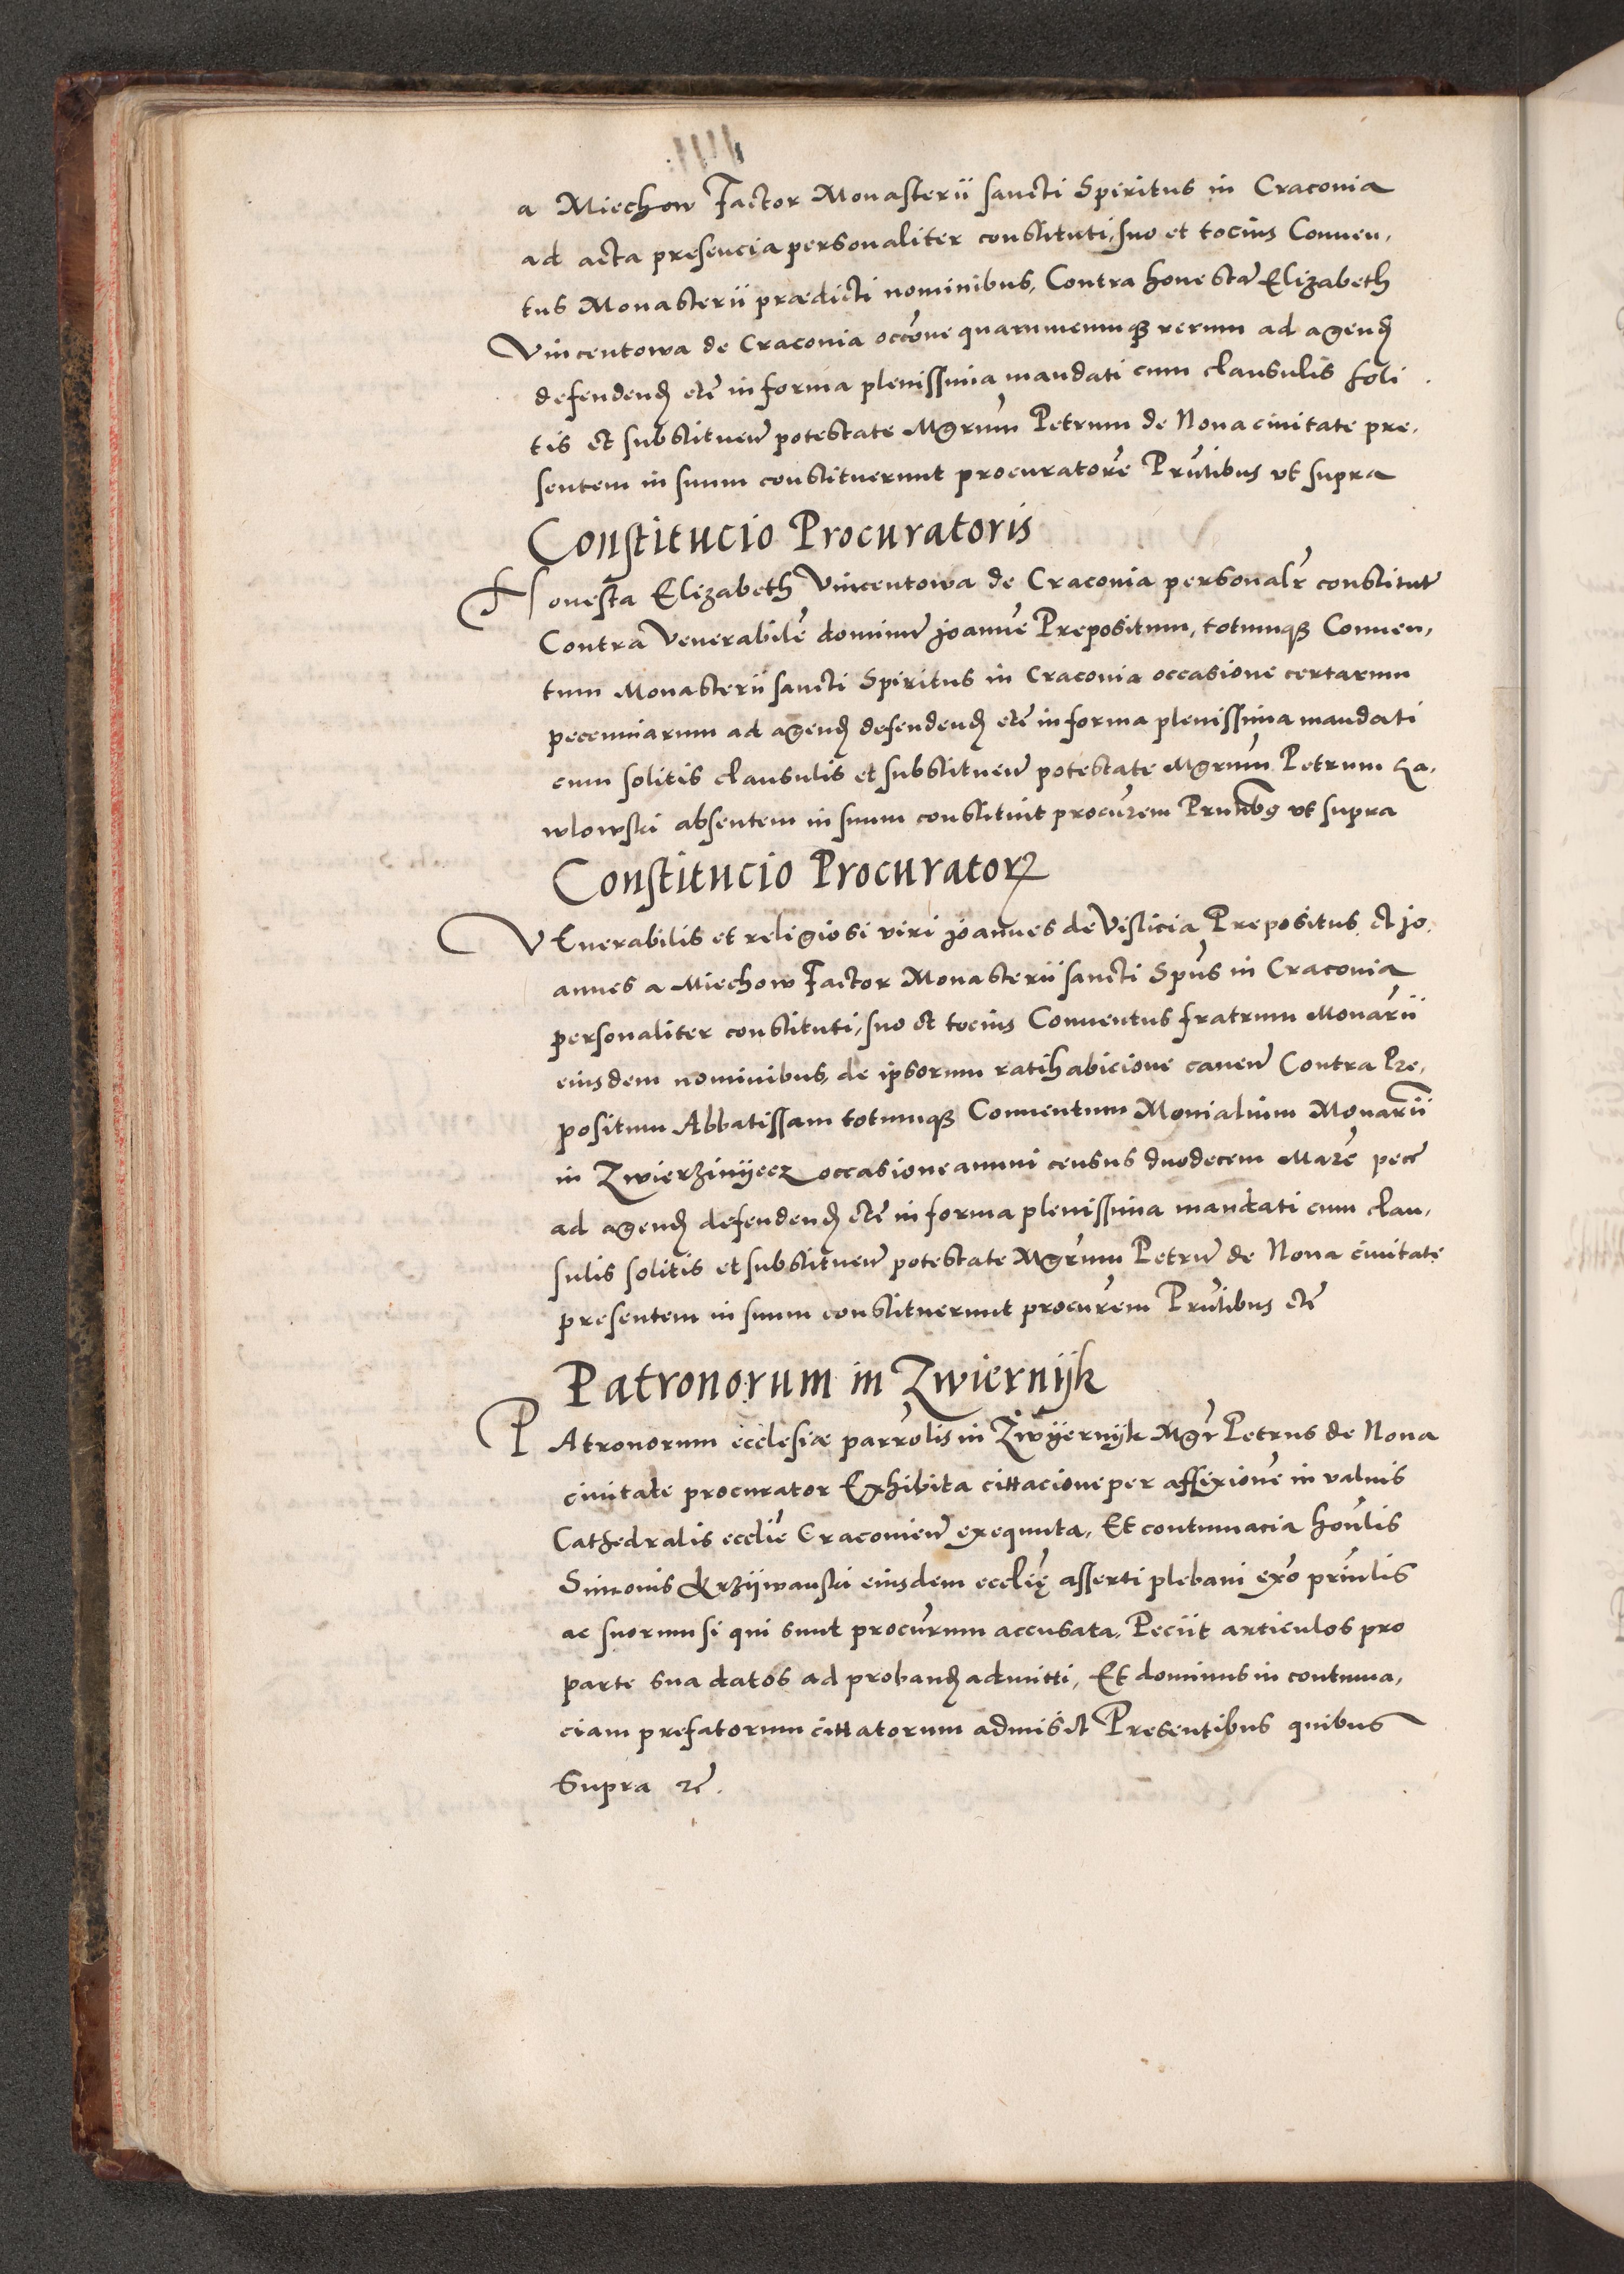 a Miechow Factor Monasterii sancti Spiritus in Craconia
ad acta presencia personaliter constituti, suo et tocius Conuen,
tus Monasterii praedicti nominibus, Contra honestā Elizabeth
Vincentowa de Craconia occōne quarumcumqꝫ rerum ad agenđ
defendenđ etc̄ in forma plenissima mandati cum clausulis soli
tis et substituen̄ potestate Mgrūm Petrum de Noua ciuitate pre,
sentem in suum constituerunt procuratorē Prn̄tibus vt supra
Constitucio Procuratoris
Honesta Elizabeth Vincentowa de Craconia personalr̄ constitut̄
Contra Venerabilē dominū Joannē Prepositum, totumqꝫ Conuen,
tum Monasterii sancti Spiritus in Craconia occasione certarum
pecenniarum ad agenđ defendenđ etc̄ in forma plenissima mandati
cum solitis clausulis et substituen̄ potestate Mgrūm Petrum Ra,
wlowski absentem in suum constituit procūrem Prn̄tibꝯ vt supra
Constitucio Procuratorꝝ
VEnerabilis et religiosi viri Joannes de Vislicia Prepositus et Jo,
annes a Miechow Factor Monasterii sancti Spūs in Craconia
personaliter constituti, suo et tocius Conuentus fratrum Monarīi
eiusdem nominibus, de ipsorum ratihabicione cauen̄ Contra Pre,
positum Abbatissam totumqꝫ Conuentum Monialium Monarīi
in Zwierzinijecz occasione annui census duodecem Marc̄ pecc̄
ad agenđ defendenđ etc̄ in forma plenissima mandati cum clau,
sulis solitis et substituen̄ potestate Mgrūm Petrū de Noua ciuitate
presentem in suum constituerunt procūrem Prn̄tibus etc̄
Patronorum in Zwiernijk
PAtronorum ecclesiae parrōlis in Zwÿernijk Mgr̄ Petrus de Noua
ciuitate procurator Exhibita cittacione per affixionē in valuis
Cathedralis eccliē Craconien̄ exequuta, Et contumacia honl̄is
Simonis Krzijwanski eiusdem ecclię̄ asserti plebani exō prin̄lis
ac suorum si qui sunt procūrum accusata, Peciit articulos pro
parte sua datos ad probanđ admitti, Et dominus in contuma,
ciam prefatorum cittatorum admisit Presentibus quibus
Supra etc̄.